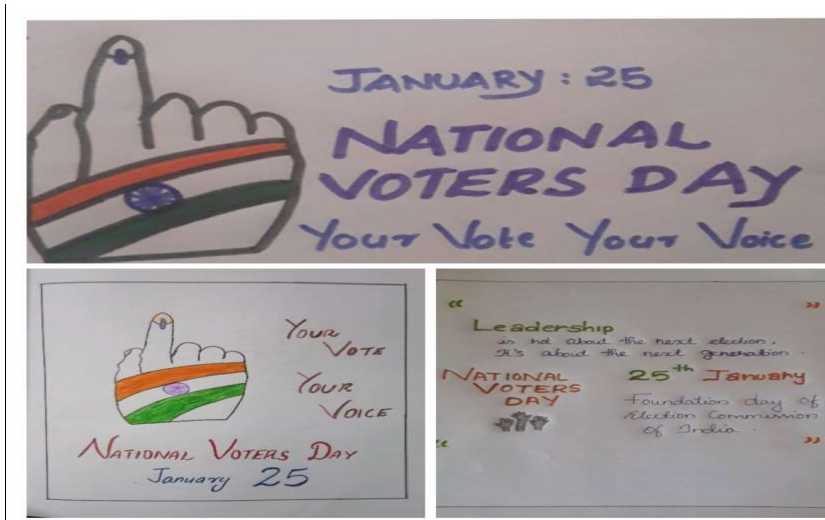 JANUARY : 25
NATIONAL
VOTERS DAY
Your Vote Your Voice
YOUR
VOTE
YOUR
VOICE
NATIONAL VOTERS DAY
January 25
Leadership
is not about the next election,
It's about the next generation.
NATIONAL
VOTERS
DAY
25th January
Foundation day of
Election Commission
of India.